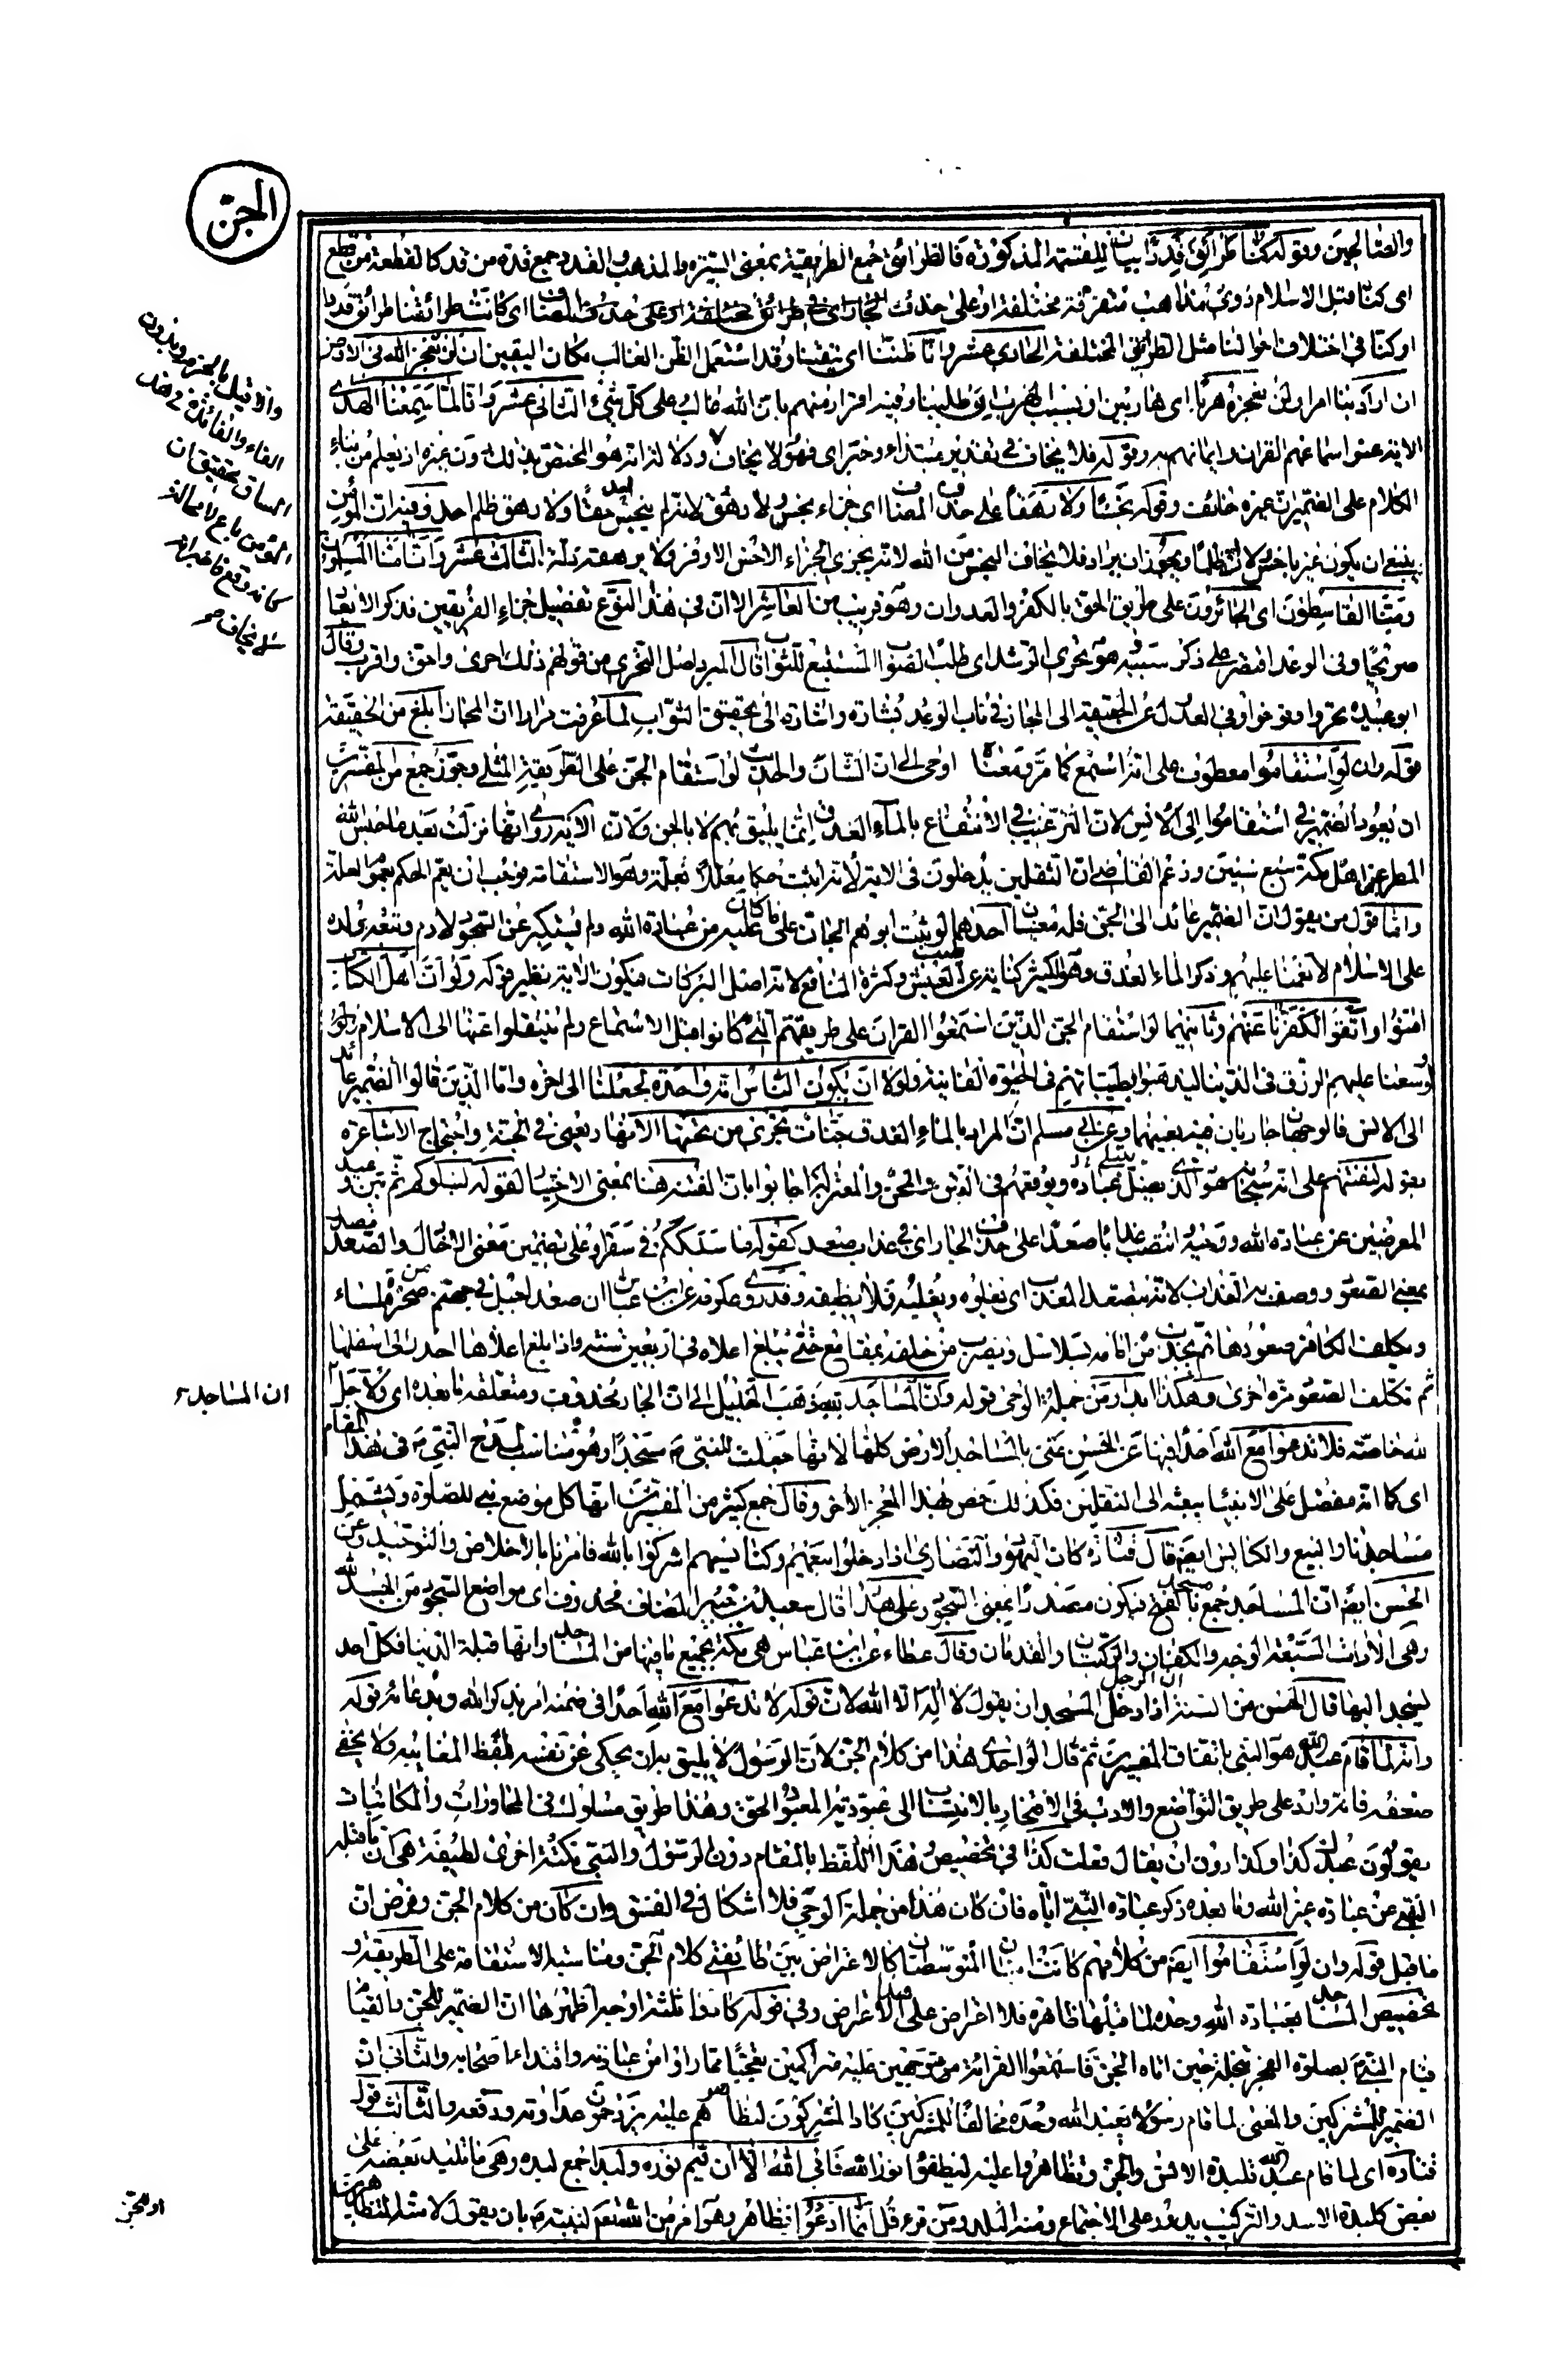 الجنّ
والصالحين وقوله كنا طرائق قددا بيان للقسمة المذكورة فالطرائق جمع الطريقة بمعنى السيرة والمذهب والقدد جمع قدة من قد كالقطعة من قطع
اى كنا قبل الاسلام ذوى مذاهب متفرقة مختلفة او على حذف الجار اى فى طرائق مختلفة او على حذف المضاف اى كانت طرائقنا طرائق قددا
او كنا فى اختلاف احوالنا مثل الطرائق المختلفة الحادى عشر وانا ظننا اى تيقنا وقد استعمل الظن الغالب مكان اليقين ان لن نعجز الله فى الارض
ان اراد بنا امرا ولن نعجزه هربا اى هاربين او بسبب الهرب ان طلبنا وفيه اقرار منهم بان الله غالب على كل شىء الثانى عشر وانا لما سمعنا الهدى
الاية عنوا سماعهم القران وايمانهم به وقوله فلا يخاف فى تقدير مبتداء وخبر اى فهو لا يخاف ودلالة انه هو المختص بذلك دون غيره اذ يعلم من بناء
الكلام على الضمير ان غيره خائف وقوله بخسا ولا رهقا على حذف المضاف اى جزاء بخس ولا رهق لانه لم يبخس احدا حقا ولا رهق ظلم احد وفيه ان المؤمن
ينبغى ان يكون غير باخس ولا ظالم ويجوز ان يراد فلا يخاف البخس من الله لانه يجزى الجزاء الاحسن الاوفر ولا يرهقه ذلة الثالث عشر وانا منا المسلمون
ومنا القاسطون اى الجائرون على طريق الحق بالكفر والعدوان وهو قريب من العاشر الا ان فى هذا النوع تفصيل جزاء الفريقين فذكر الايعاد
صريحا وفى الوعد اقتصر على ذكر سببه وهو تحرى الرشد اى طلب الصواب المستتبع للثواب قال المبرد اصل التحرى من قولهم ذلك احرى واحق واقرب وقال
ابو عبيدة تحروا توخوا وفى العدول عن الحقيقة الى المجاز فى باب الوعد بشارة واشارة الى تحقيق الثواب لما عرفت مرارا ان المجاز ابلغ من الحقيقة
قوله وان لو استقاموا معطوف على انه استمع كما مر ومعناه اوحى الى ان الشان والحديث لو استقام الجن على الطريقة المثلى وجوز جمع من المفسرين
ان يعود الضمير فى استقاموا الى الانس لان الترغيب فى الانتفاع بالماء الغدق انما يليق بهم لا بالجن ولان الاية روى انها نزلت بعد ما حبس الله
المطر عن اهل مكة سبع سنين وزعم القاضى ان الثقلين يدخلون فى الاية لانه اثبت حكما معللا بعلة وهو الاستقامة فوجب ان يعم الحكم بعموم العلة
واما قول من يقول ان الضمير عائد الى الجن فله معنيان احدهما لو ثبت ابوهم الجان على ما كان عليه من عبادة الله ولم يستكبر عن السجود لادم وتبعه ولده
على الاسلام لانعمنا عليهم وذكر الماء الغدق وهو الكثير كناية عن طيب العيش وكثرة المنافع لانه اصل البركات فيكون الاية نظير قوله ولو ان اهل الكتاب
امنوا واتقوا لكفرنا عنهم وثانيهما لو استقام الجن الذين استمعوا القران على طريقتهم التى كانوا قبل الاستماع ولم ينتقلوا عنها الى الاسلام
لوسعنا عليهم الرزق فى الدنيا ليذهبوا بطيباتهم فى الحيوة الفانية ولولا ان يكون الناس امة واحدة لجعلنا الى اخره واما الذين قالوا الضمير عائد
الى الانس فالوجهان جاريان فيه بعينهما وعن ابى مسلم ان المراد بالماء الغدق جنات تجرى من تحتها الانهار يعنى فى الجنة واحتجاج الاشاعرة
بقوله لنفتنهم على انه سبحانه هو الذى يضل عباده ويوقعهم فى الفتن والمحن والمعتزلة اجابوا بان الفتنة هنا بمعنى الاختبار كقوله ليبلوكم ثم بين وعيد
المعرضين عن عبادة الله ووحيه انتصب عذابا صعدا على حذف الجار اى فى عذاب صعد كقوله ما سلككم فى سقر او على تضمين معنى الادخال والصعد مصدر
بمعنى الصعود ووصف به العذاب لانه يتصعد المعذب اى يعلوه ويغلبه فلا يطيقه وقد روى عكرمة عن ابن عباس ان صعدا جبل فى جهنم من صخرة ملساء
ويكلف الكافر صعودها ثم يجذب من امامه بسلاسل ويضرب من خلفه بمقامع حتى يبلغ اعلاه فى اربعين سنة واذا بلغ اعلاها احدر الى اسفلها
ثم تكلف الصعود مرة اخرى وهكذا ابدا ومن جملة الوحى قوله وان المساجد لله ذهب الخليل الى ان الجار محذوف ومتعلقه ما بعده اى ولاجل ان المساجد
لله خاصة فلا تدعوا مع الله احدا فيها عن الحسن عنى بالمساجد الارض كلها لانها جعلت للنبى م مسجدا وهو مناسب لمدح النبى م فى هذا المقام
اى كما انه مفضل على الانبياء ببعثه الى الثقلين فكذلك خص بهذا المعجز الاخر وقال جمع كثير من المفسرين انها كل موضع بنى للصلوة ويشمل
مساجدنا والبيع والكنايس ايضا قال قتادة كان اليهود والنصارى اذا دخلوا بيعهم وكنايسهم اشركوا بالله فامرنا بالاخلاص والتوحيد وعن
الحسن ايضا ان المساجد جمع مسجد بالفتح فيكون مصدرا بمعنى السجود وعلى هذا قال سعيد بن جبير المضاف محذوف اى مواضع السجود من الجسد لله
وهى الاراب السبعة الوجه والكفان والركبتان والقدمان وقال عطاء عن ابن عباس هى مكة بجميع ما فيها من المساجد وانها قبلة الدنيا فكل احد
يسجد اليها قال الحسن من السنة اذا دخل الرجل المسجد ان يقول لا اله الا الله لان قوله لا تدعوا مع الله احدا فى ضمنه امر بذكر الله وبدعائه قوله
وانه لما قام عبد الله هو النبى باتفاق المفسرين ثم قال الواحدى هذا من كلام الجن لان الرسول لا يليق به ان يحكى عن نفسه بلفظ المغايبة ولا يخفى
ضعفه فانه وارد على طريق التواضع والادب فى الافتخار بالانتساب الى عبودية المعبود الحق وهذا طريق مسلوك فى المحاورات والمكاتبات
يقولون عبدك كذا وكذا دون ان يقال فعلت كذا فى تخصيص هذا اللفظ بالمقام دون الرسول والنبى نكتة اخرى لطيفة هى ان ما قبله
النهى عن عبادة غير الله وما بعده ذكر عبادة النبى اياه فان كان هذا من جملة الوحى فلا اشكال فى النسق وان كان من كلام الجن وفرض ان
ما قبل قوله وان لو استقاموا ايضا من كلامهم كانت الايتان المتوسطتان كالاعتراض بين طائفتى كلام الجن ومناسبة الاستقامة على الطريقة و
تخصيص المساجد بعبادة الله وحده لما قبلها ظاهرة فلا اعتراض على الاعتراض وفى قوله كادوا ثلثة اوجه اظهرها ان الضمير للجن والقيام
قيام النبى م بصلوة الفجر بنخلة حين اتاه الجن فاستمعوا القرائة متزاحمين عليه متراكمين تعجبا مما راوا من عبادته واقتداء اصحابه والثانى ان
الضمير للمشركين والمعنى لما قام رسولا يعبد الله وحده مخالفا للمشركين كاد المشركون لتظاهرهم عليه يزدحمون عداوته ودفعه والثالث قول
قتادة اى لما قام عبد الله تلبدت الانس والجن وتظاهروا عليه ليطفؤا نور الله فابى الله الا ان يتم نوره ولبدا جمع لبدة وهى ما تلبد بعضه على
بعض كلبدة الاسد والتركيب يدور على الاجتماع ومنه اللبد ومن قرء قل انما ادعوا فظاهر وهو امر من الله تعم لنبيه م بان يقول لامته المتظاهرين
ان المساجد
او للجن